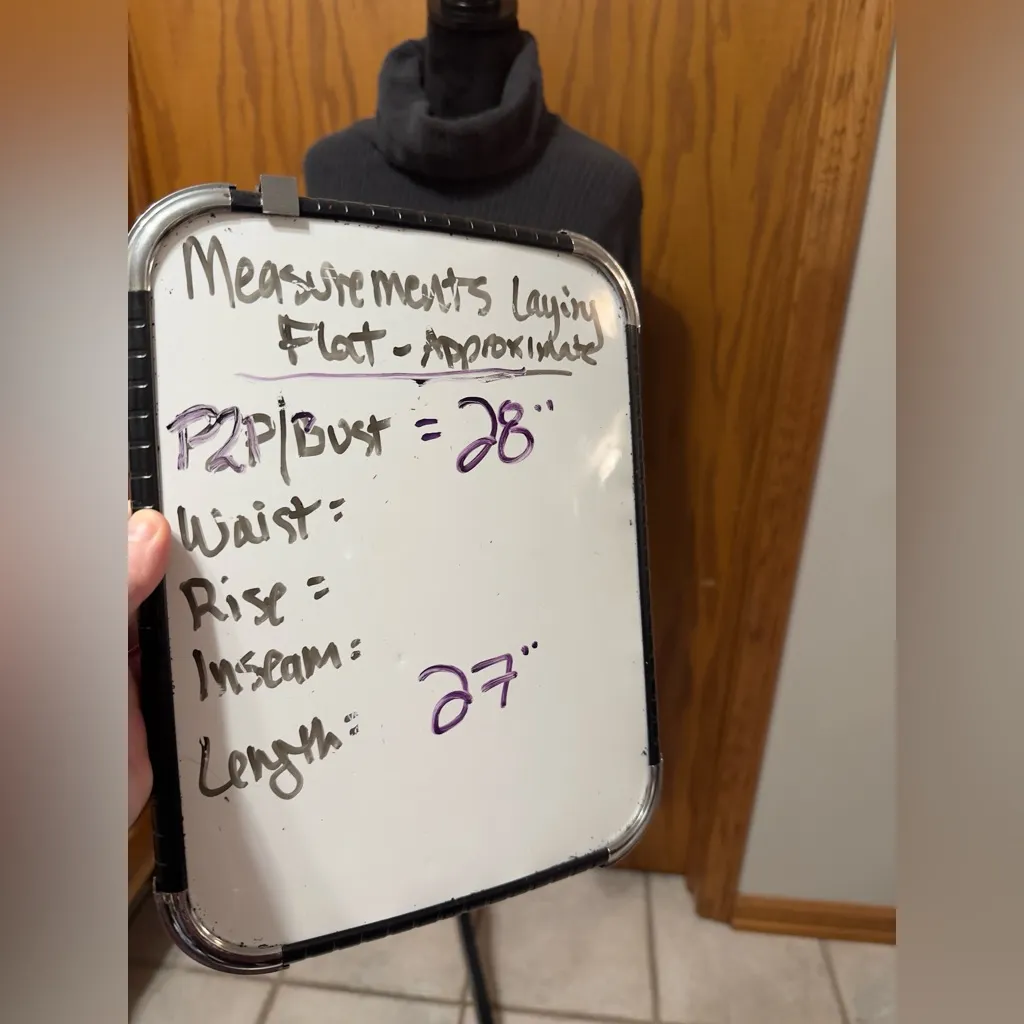 Measurements Laying
Flat - Approximate
P2P|Bust = 28"
Waist:
Rise =
Inseam:
Length: 27"